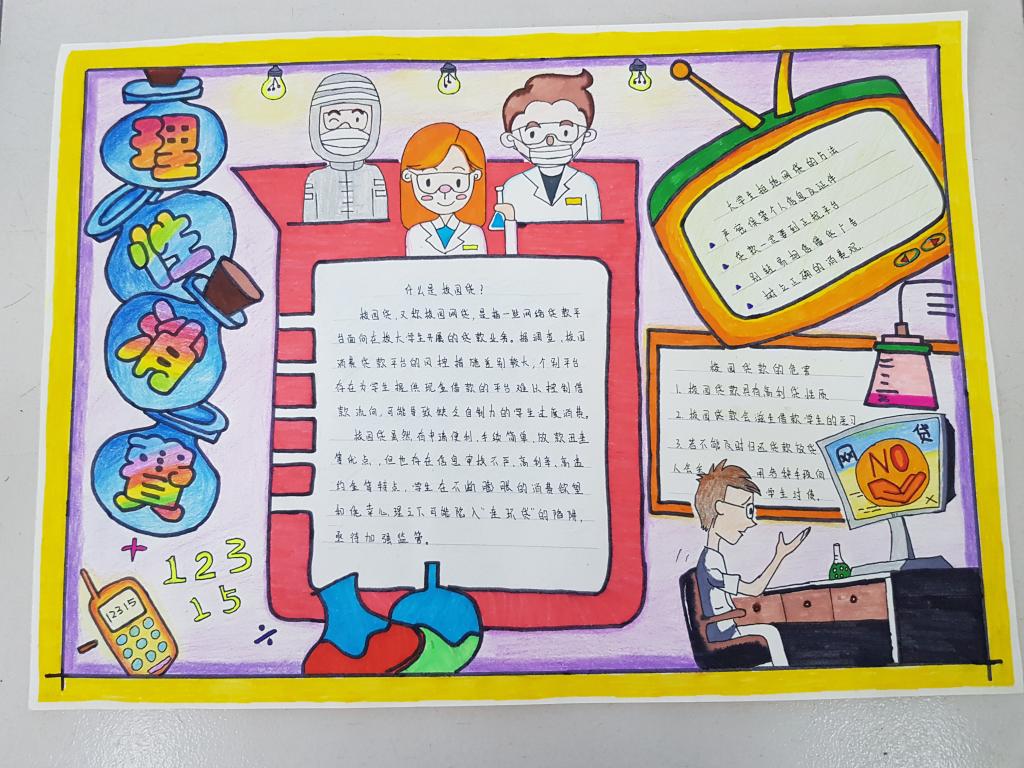 理
性
消
费
什么是校园贷?
校园贷,又称校园网贷,是指一些网络贷款平
台面向在校大学生开展的贷款业务。据调查,校园
消费贷款平台的风控措施差别较大,个别平台
存在为学生提供现金借款的平台难以控制借
款流向,可能导致缺乏自制力的学生过度消费。
校园贷虽然有申请便利,手续简单,放款迅速
等优点,但也存在信息审核不严,高利率,高违
约金等特点,学生在不断膨胀的消费欲望
和侥幸心理之下可能陷入“连环贷”的陷阱,
亟待加强监管。
大学生拒绝网贷的方法
严密保管个人信息及证件
贷款一定要到正规平台
别轻易相信借贷广告
树立正确的消费观.
校园贷款的危害
1. 校园贷款具有高利贷性质
2. 校园贷款会滋生借款学生的恶习
3. 若不能及时归还贷款放贷
人会采 用各种手段向
学生讨债.
网 贷
NO
+
123
15
12315
-
÷
×